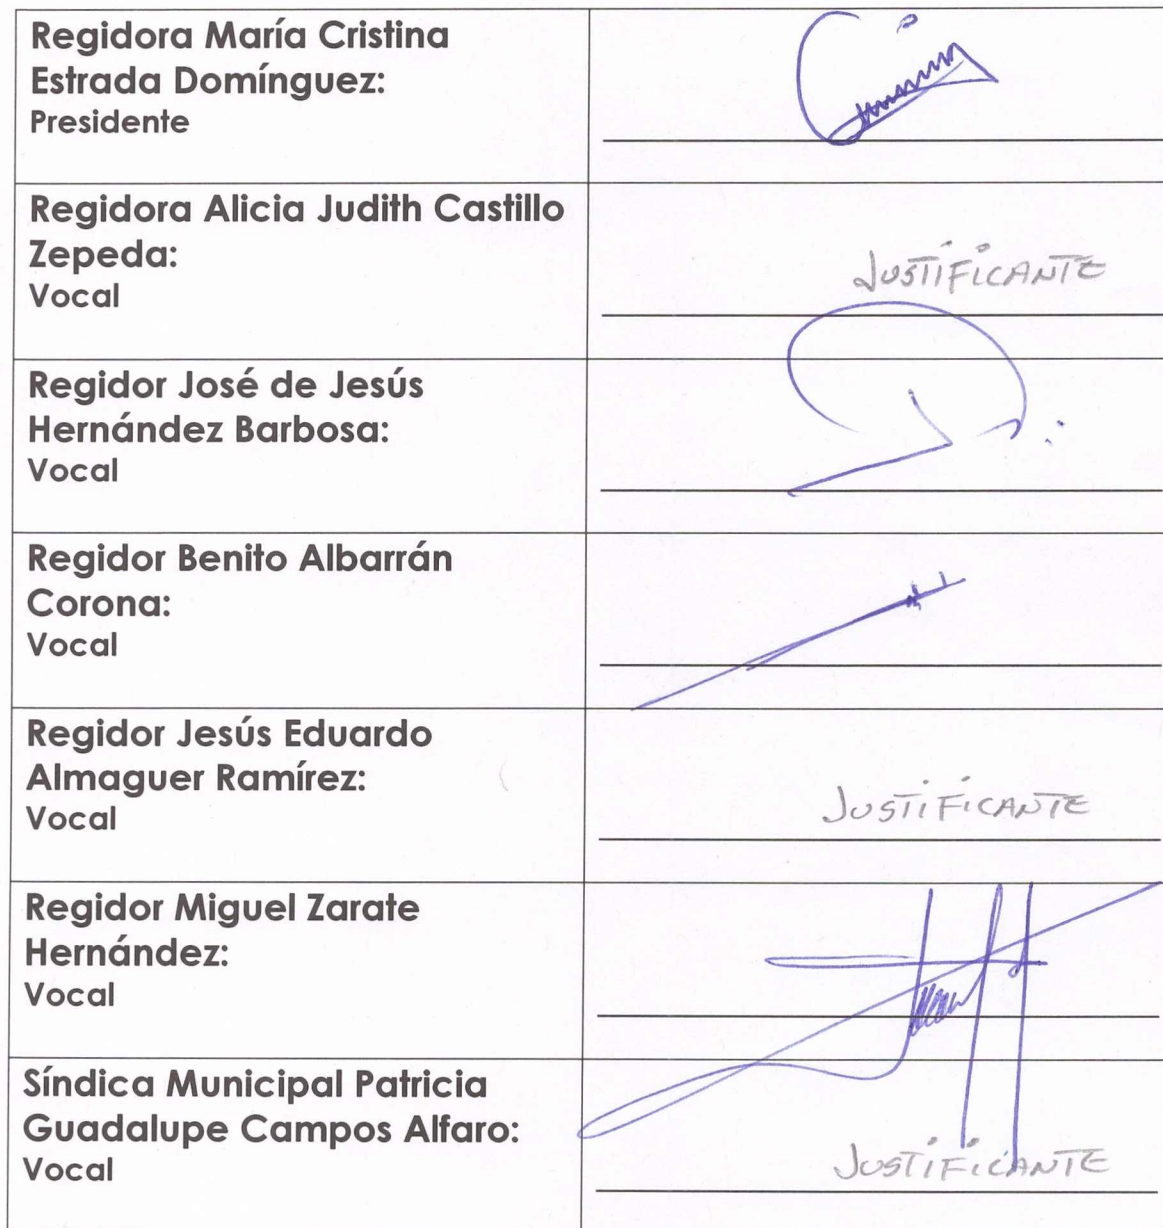 Regidora María Cristina
Estrada Domínguez:
Presidente
Regidora Alicia Judith Castillo
Zepeda:
Vocal
JUSTIFICANTE
Regidor José de Jesús
Hernández Barbosa:
Vocal
Regidor Benito Albarrán
Corona:
Vocal
Regidor Jesús Eduardo
Almaguer Ramírez:
Vocal
JUSTIFICANTE
Regidor Miguel Zarate
Hernández:
Vocal
Síndica Municipal Patricia
Guadalupe Campos Alfaro:
Vocal
JUSTIFICANTE